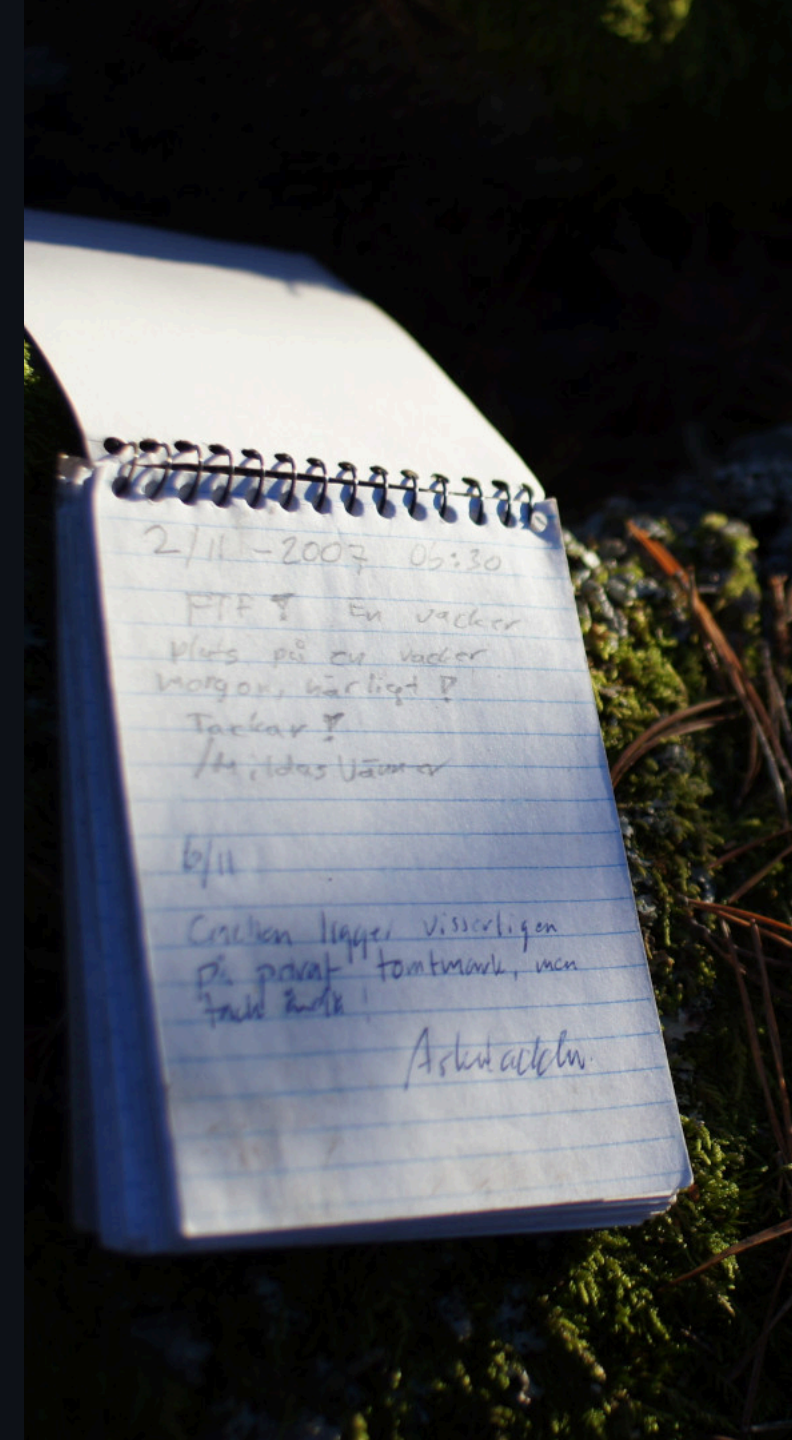 2/11 - 2007 06:30
FTF! En vacker
plats på en vacker
morgon, härligt!
Tackar!
/Mildas Vänner
6/11
ligger visserligen
på privat tomtmark, men
tack ändå!